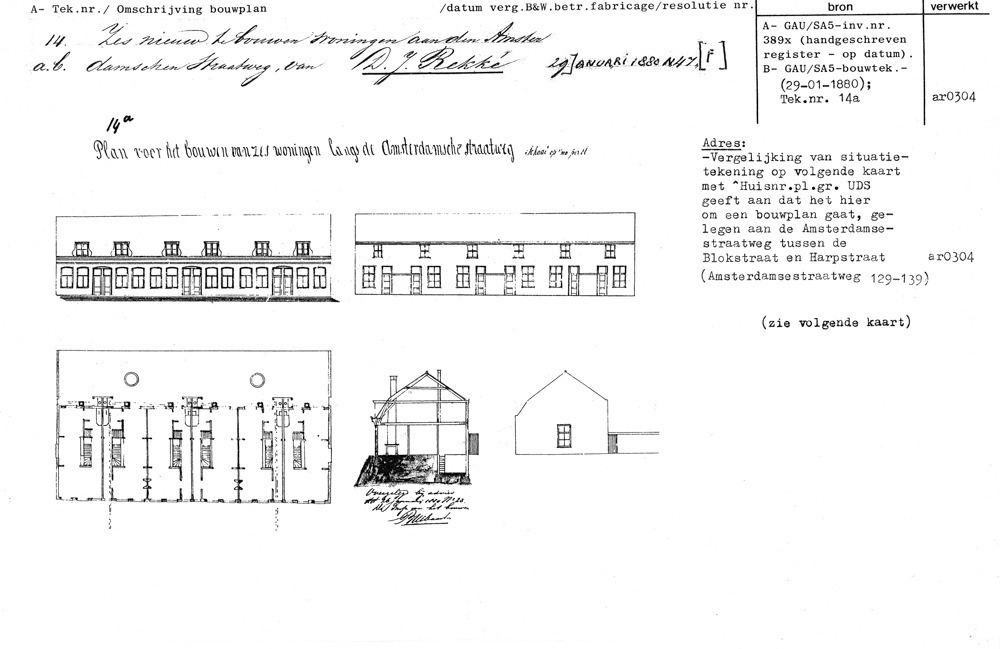 A- Tek.nr./ Omschrijving bouwplan /datum verg.B&W.betr.fabricage/resolutie nr.
14. Zes nieuw te bouwen woningen aan den Amster
a.b. damschen Straatweg, van D. J. Rekké 29 JANUARI 1880 N47, [F]
bron
A- GAU/SA5-inv.nr.
389x (handgeschreven
register - op datum).
B- GAU/SA5-bouwtek.-
(29-01-1880);
Tek.nr. 14a
verwerkt
ar0304
14a
Plan voor het bouwen van zes woningen langs de Amsterdamsche straatweg
Adres:
-Vergelijking van situatie-
tekening op volgende kaart
met ^Huisnr.pl.gr. UDS
geeft aan dat het hier
om een bouwplan gaat, ge-
legen aan de Amsterdamse-
straatweg tussen de
Blokstraat en Harpstraat ar0304
(Amsterdamsestraatweg 129-139)
(zie volgende kaart)
Overgelegd bij advies